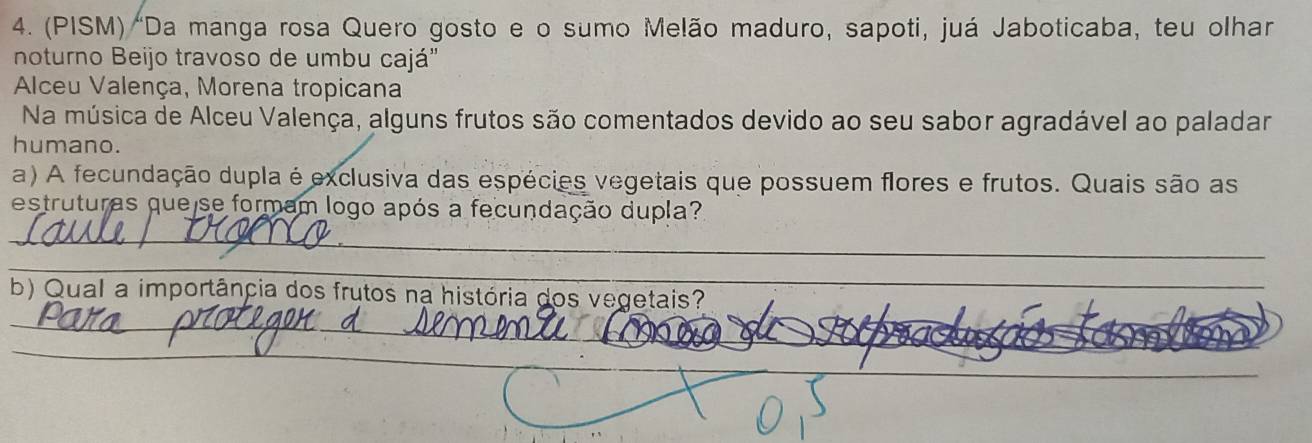 4. (PISM) “Da manga rosa Quero gosto e o sumo Melão maduro, sapoti, juá Jaboticaba, teu olhar
noturno Beijo travoso de umbu cajá”
Alceu Valença, Morena tropicana
Na música de Alceu Valença, alguns frutos são comentados devido ao seu sabor agradável ao paladar
humano.
a) A fecundação dupla é exclusiva das espécies vegetais que possuem flores e frutos. Quais são as
estruturas que se formam logo após a fecundação dupla?
Caule / tronco.
b) Qual a importância dos frutos na história dos vegetais?
Para proteger a semente
0,5